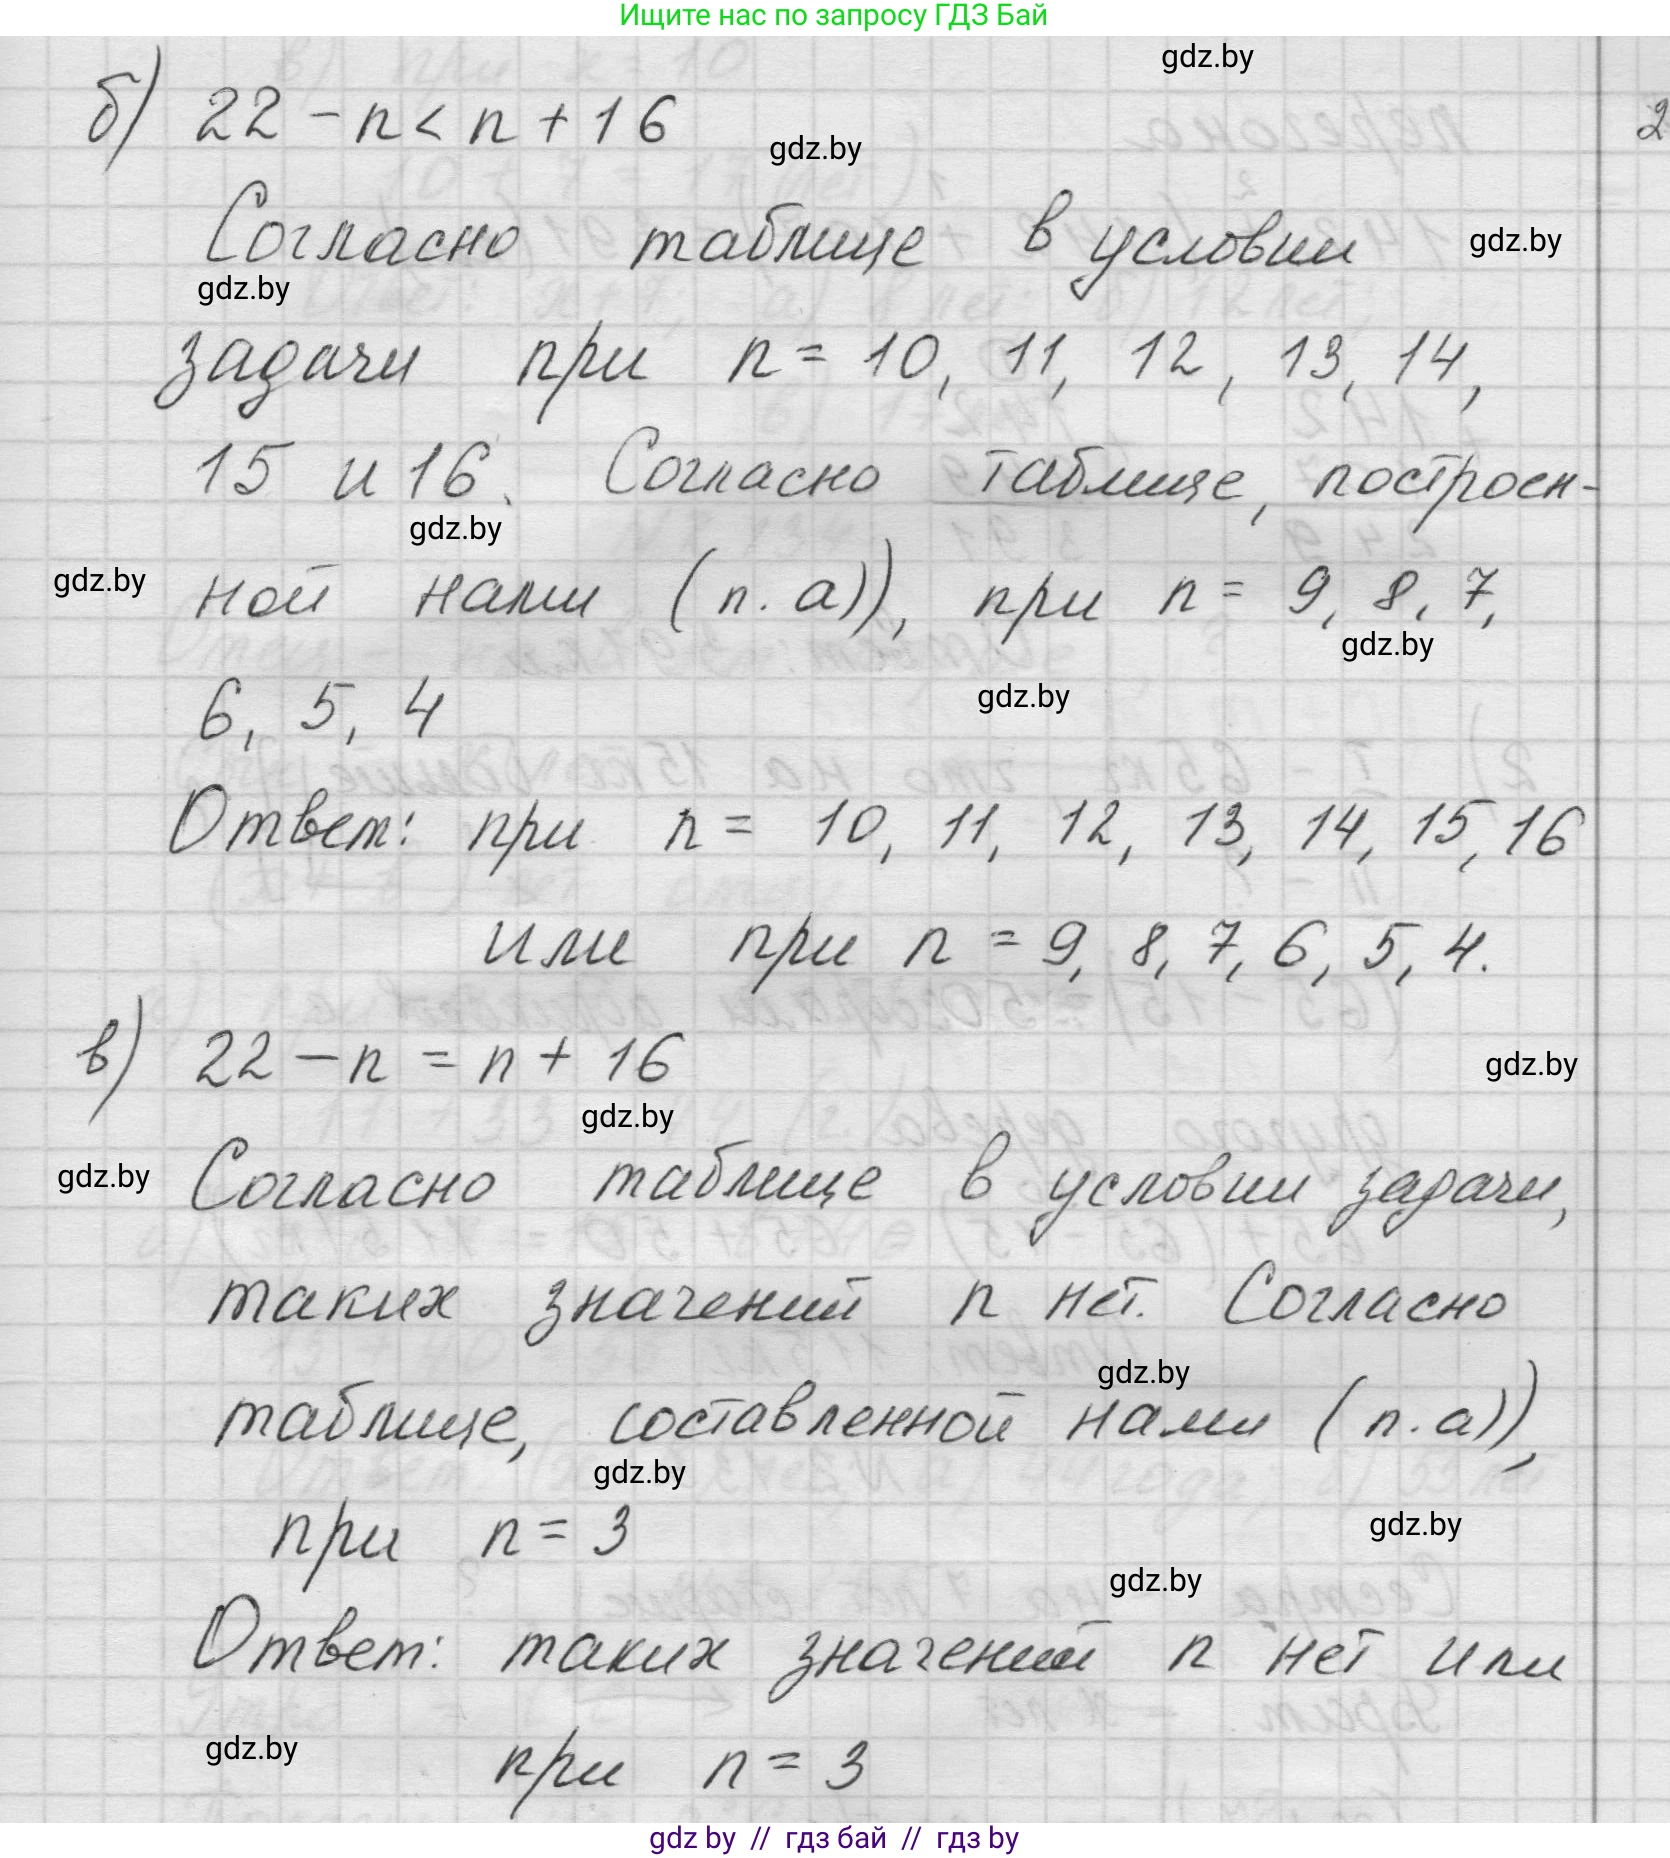 Ищите нас по запросу ГДЗ Бай
gdz.by
б) 22 - n < n + 16
2
gdz.by
Согласно таблице в условии
gdz.by
gdz.by
задачи при n = 10, 11, 12, 13, 14,
15 и 16. Согласно таблице, построен-
gdz.by
gdz.by
ной нами (п. а)), при n = 9, 8, 7,
gdz.by
6, 5, 4
gdz.by
Ответ: при n = 10, 11, 12, 13, 14, 15, 16
или при n = 9, 8, 7, 6, 5, 4.
в) 22 - n = n + 16
gdz.by
gdz.by
gdz.by
Согласно таблице в условии задачи,
таких значений n нет. Согласно
gdz.by
таблице, составленной нами (п. а)),
gdz.by
при n = 3
gdz.by
gdz.by
Ответ: таких значений n нет или
gdz.by
при n = 3
gdz by // гдз бай // гдз by